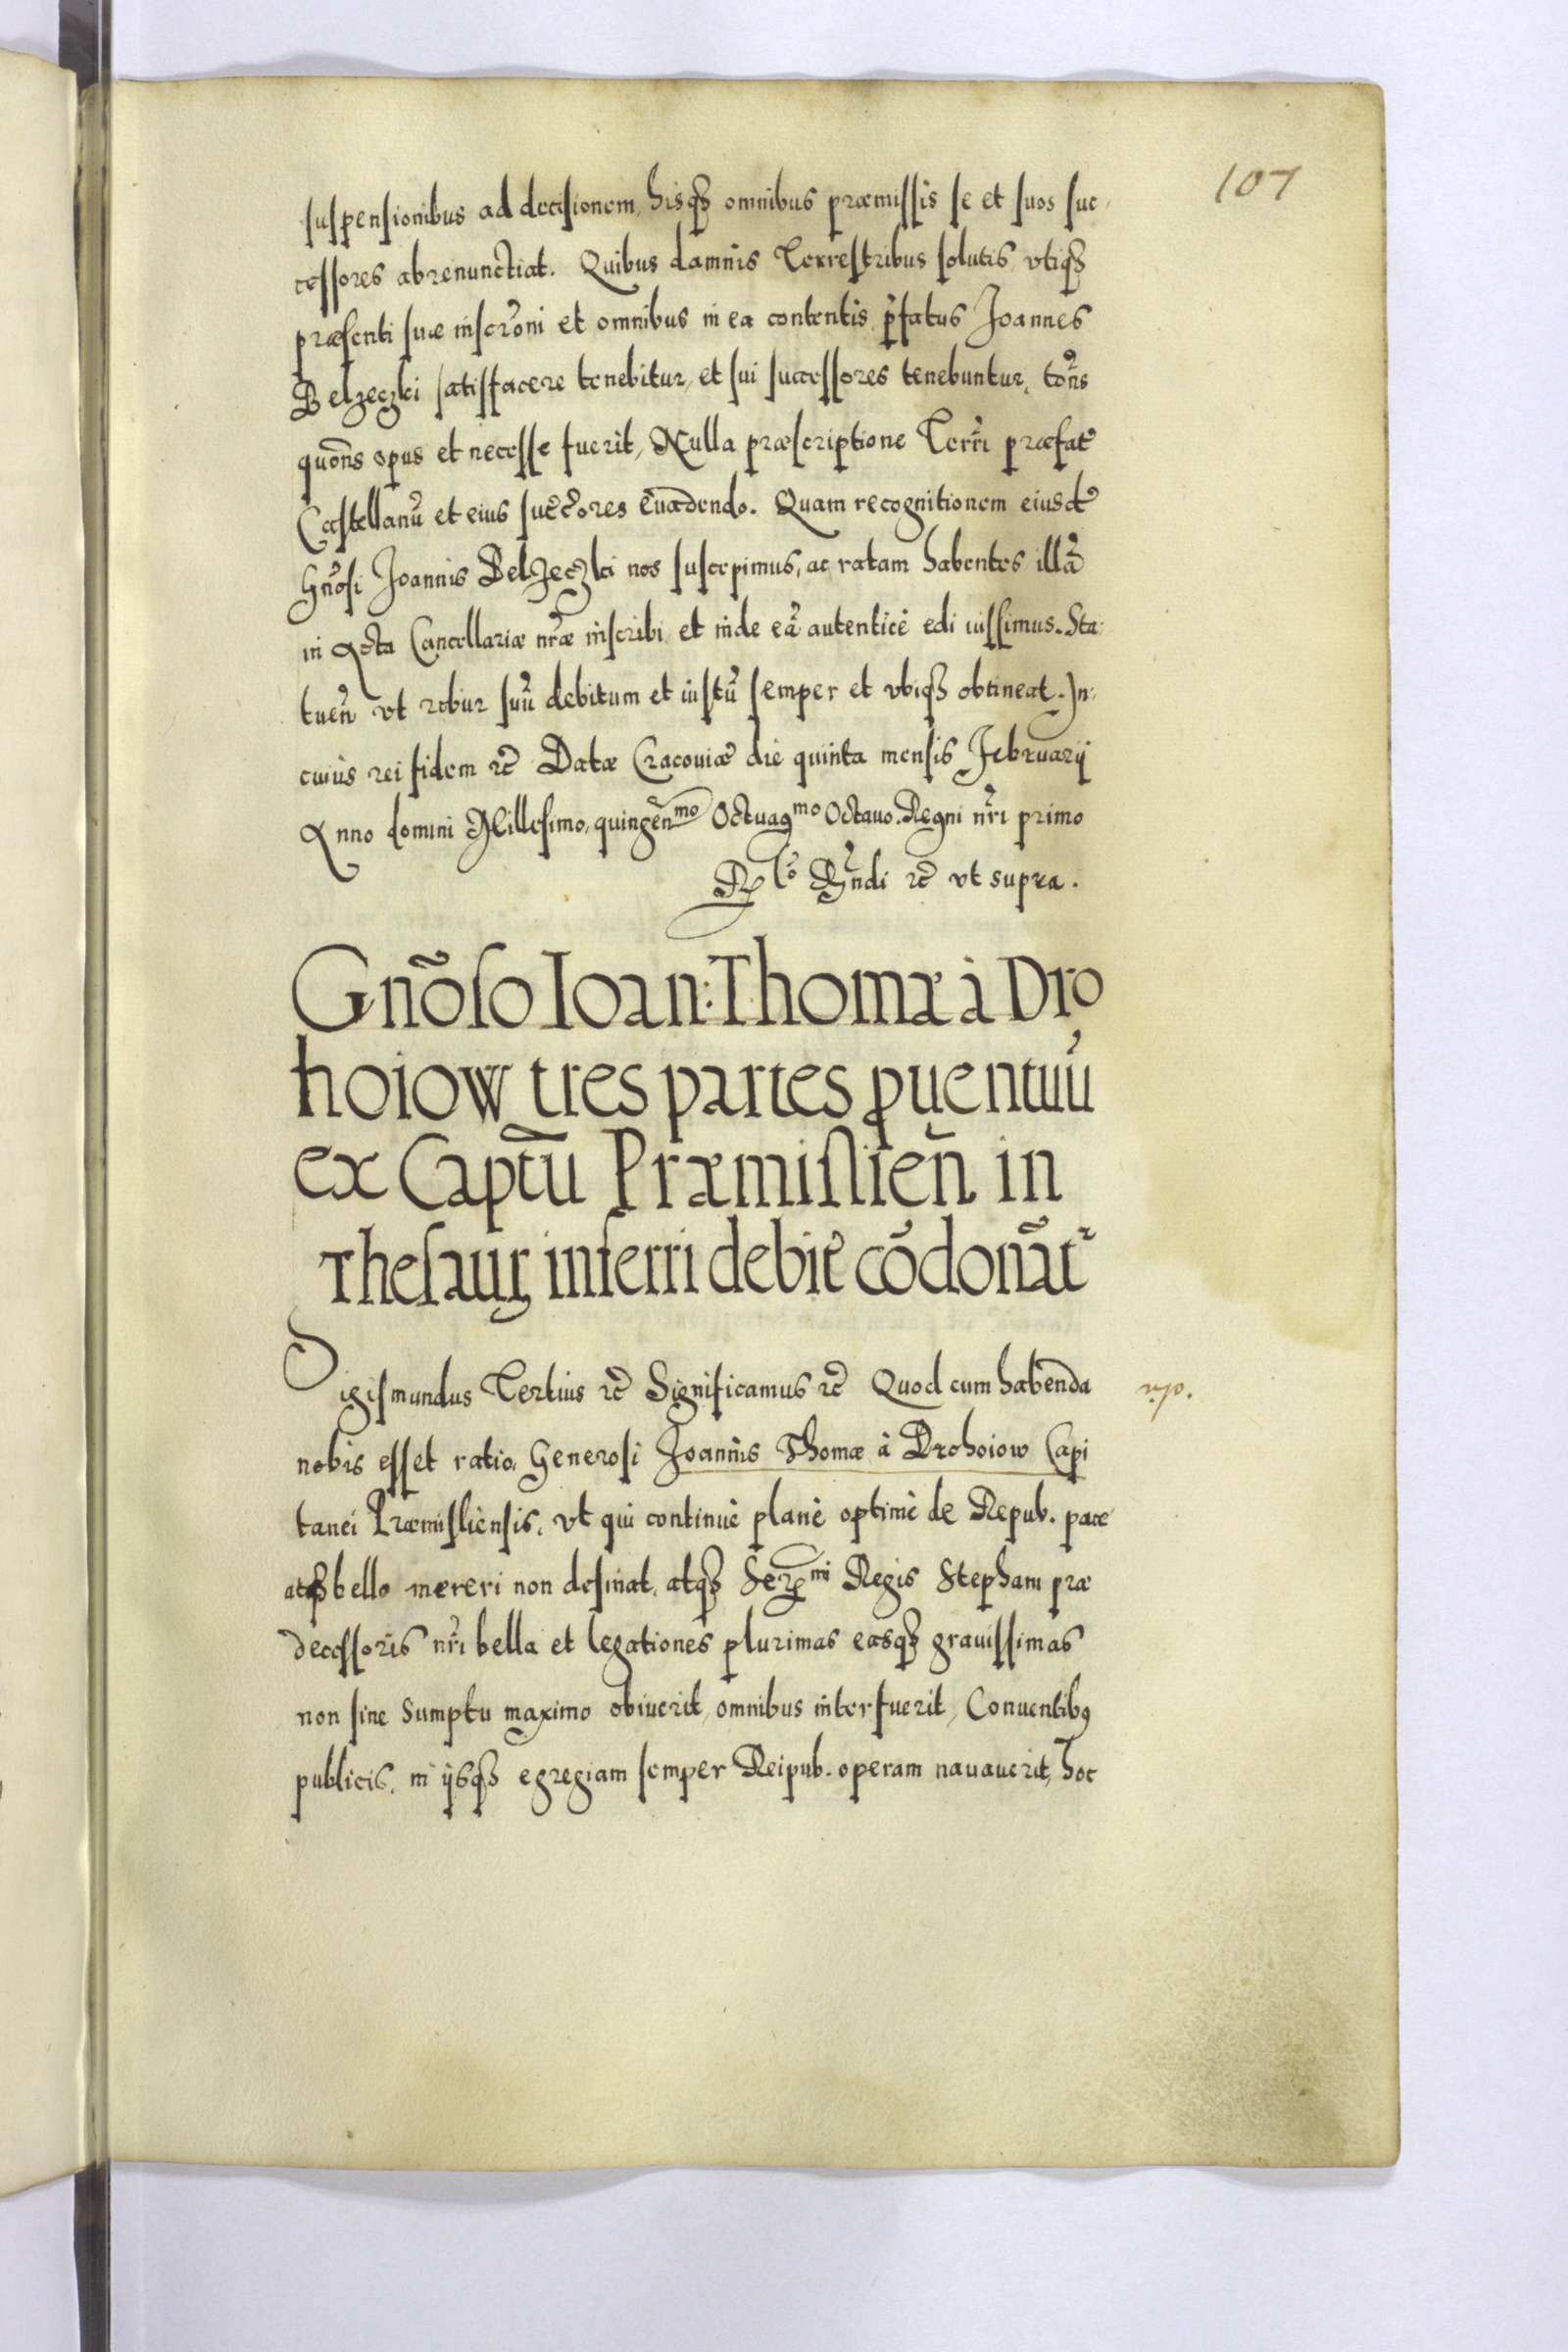 107
suspensionibus ad decisionem, hisq₃ omnibus præmissis se et suos suc-
cessores abrenunctiat. Quibus damnis Terrestribus solutis, vtiq₃
præsenti suæ inscr̃oni et omnibus in ea contentis, p̃fatus Joannes
Belzeczki satisfacere tenebitur, et sui successores tenebuntur, tõns
quõns opus et necesse fuerit, Nulla præscriptione Terr̃i præfat̃
Castellanũ et eius suc̃c̃ores evadendo. Quam recognitionem eiusd̃
Gñosi Joannis Belzeczki nos suscepimus, ac ratam habentes illã
in Acta Cancellariæ nr̃æ inscribi, et inde eã autenticè edi iussimus. Sta-
tuen̄ vt robur suũ debitum et iustũ semper et vbiq₃ obtineat. In
cuius rei fidem &c̃ Datæ Cracouiæ die quinta mensis Februarij
Anno domini Millesimo, quingen̄ᵐᵒ Octuagᵐᵒ Octauo. Regni nr̃i primo
Rñdi &c̃ vt supra.
Gnõso Ioan: Thomæ à Dro
hoiow tres partes ꝓuentuũ
ex Captũ Præmislien̄ in
Thesaur̃ inferri debit̃ cõdonãt̃
Sigismundus Tertius &c̃ Significamus &c̃ Quod cum habenda
nobis esset ratio, Generosi Joannis Thomæ à Drohoiow Capi
tanei Præmisliensis, vt qui continuè planè optimè de Repub. pace
atq₃ bello mereri non desinat, atq₃ Serᵐⁱ Regis Stephani præ
decessoris nr̃i bella et legationes plurimas easq₃ grauissimas
non sine sumptu maximo obiuerit, omnibus interfuerit, Conuentibꝰ
publicis, in ijsq₃ egregiam semper Reipub. operam nauauerit, hoc